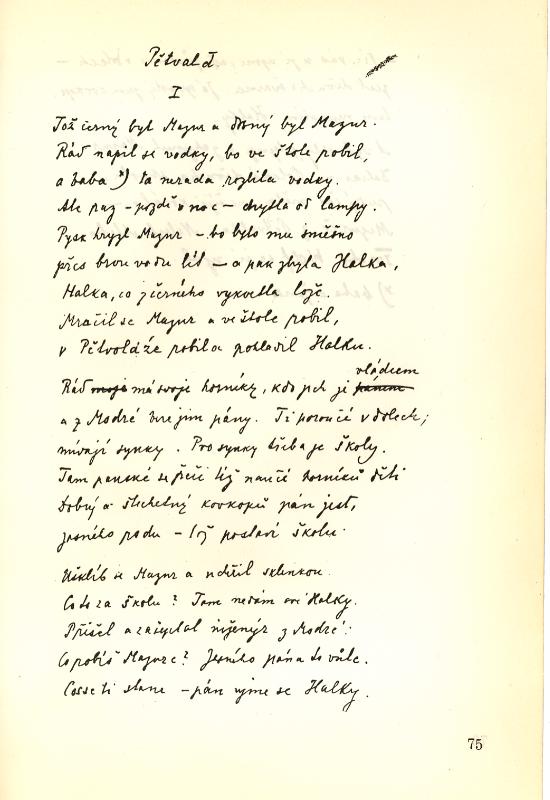 Pětvald
I
Tož černý byl Mazur a drsný byl Mazur.
Rád napil se vodky, bo ve štole robil,
a baba *) ta nerada rozlila vodky.
Ale raz – pozdě v noc – chytla od lampy.
Pysk hryzl Mazur – bo bylo mu směšno
přes brvu vodu lít – a pak zbyla Halka,
Halka, co z černého vykvetla lože.
Mračil se Mazur a ve štole robil,
v Pětvaldě robil a pohladil Halku.
vládcem
Rád má svoje horníky, kdo jich je pánem
a z Modré jejim pány. Ti poroučí v dolech;
mívají synky. Pro synky třeba je školy.
Tam panské se též naučí horníků děti
Dobrý a šlechetný kovkopů pán jest,
jasného rodu – tož postaví školu.
Ušklíb se Mazur a udeřil sklenkou.
Co to za školu? Tam nedám Halky.
Přišel a zasyčel inženýr z Modré:
Co robíš Mazure? Jasného pána to vůle.
Cosse ti stane – pán ujme se Halky.
75